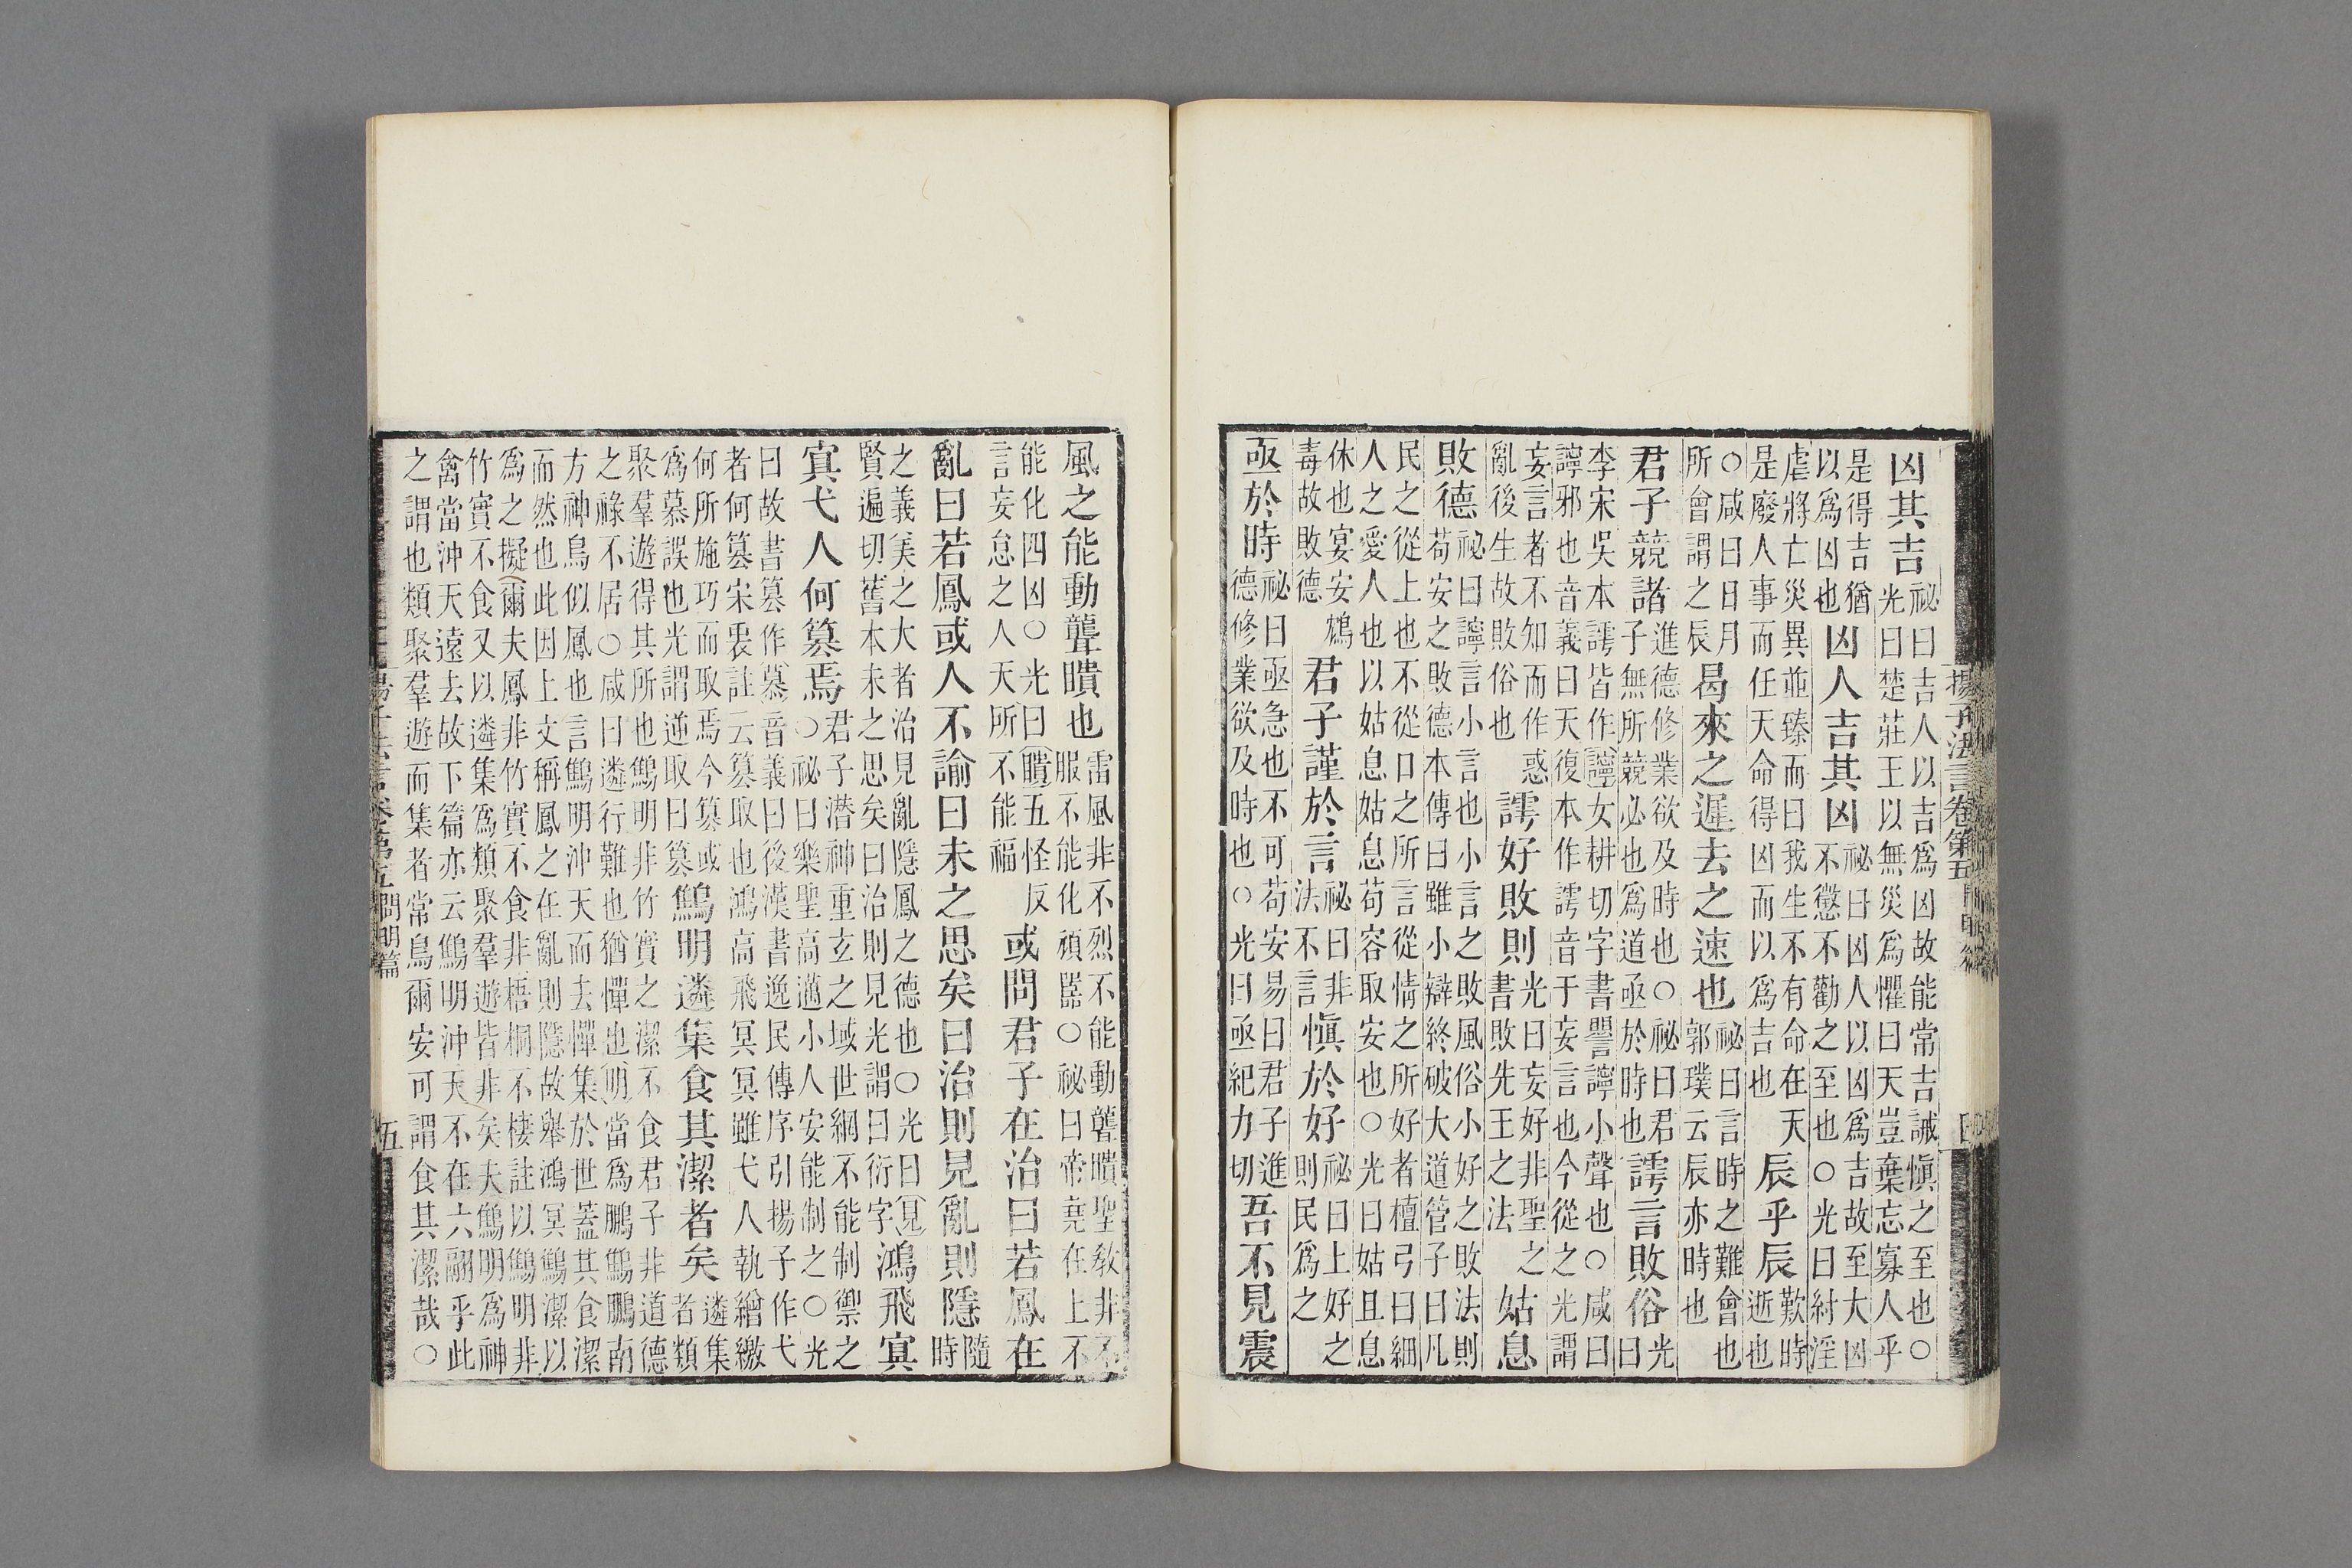 凶其吉祕曰吉人以吉爲凶故能常吉誡愼之至也○光曰楚莊王以無災爲懼曰天豈棄忘寡人乎
是得吉猶以爲凶也凶人吉其凶祕曰凶人以凶爲吉故至大凶不懲不勸之至也○光曰紂淫
虐將亡災異並臻而曰我生不有命在天是廢人事而任天命得凶而以爲吉也辰乎辰歎時逝也
○咸曰日月所會謂之辰曷來之遲去之速也祕曰言時之難會也郭璞云辰亦時也
君子競諸進德修業欲及時也○祕曰君子無所競必也爲道亟於時也䛨言敗俗光曰
李宋吳本䛨皆作嚀女耕切字書譻嚀小聲也○咸曰嚀邪也音義曰天復本作䛨音于妄言也今從之光謂
妄言者不知而作惑亂後生故敗俗也䛨好敗則光曰妄好非聖之書敗先王之法姑息
敗德祕曰嚀言小言也小言之敗風俗小好之敗法則苟安之敗德本傳曰雖小辯終破大道管子曰凡
民之從上也不從口之所言從情之所好者檀弓曰細人之愛人也以姑息姑息苟容取安也○光曰姑且息
休也宴安鴆毒故敗德君子謹於言祕曰非法不言愼於好祕曰上好之則民爲之
亟於時祕曰亟急也不可苟安易曰君子進德修業欲及時也○光曰亟紀力切吾不見震
揚子法言卷第五
風之能動聾瞶也雷風非不烈不能動聾瞶聖敎非不服不能化頑嚚○祕曰帝堯在上不
能化四凶○光曰瞶五怪反言妄怠之人天所不能福或問君子在治曰若鳳在
亂曰若鳳或人不諭曰未之思矣曰治則見亂則隱隨時
之義美之大者治見亂隱鳳之德也○光曰見賢遍切舊本未之思矣曰治則見光謂曰衍字鴻飛冥
冥弋人何篡焉君子潛神重玄之域世網不能制禦之○祕曰樂聖高邁小人安能制之○光
曰故書篡作慕音義曰後漢書逸民傳序引揚子作弋者何篡宋衷註云篡取也鴻高飛冥冥雖弋人執繒繳
何所施巧而取焉今篡或爲慕誤也光謂逆取曰篡鷦明遴集食其潔者矣遴集者類
聚羣遊得其所也鷦明非竹實之潔不食君子非道德之祿不居○咸曰遴行難也猶憚也明當爲鵬鷦鵬南
方神鳥似鳳也言鷦明沖天而去憚集於世蓋其食潔而然也此因上文稱鳳之在亂則隱故舉鴻冥鷦潔以
爲之擬爾夫鳳非竹實不食非梧桐不棲註以鷦明非竹實不食又以遴集爲類聚羣遊皆非矣夫鷦明爲神
禽當沖天遠去故下篇亦云鷦明沖天不在六翮乎此之謂也類聚羣遊而集者常鳥爾安可謂食其潔哉○
揚子法言卷第五 問明篇 五